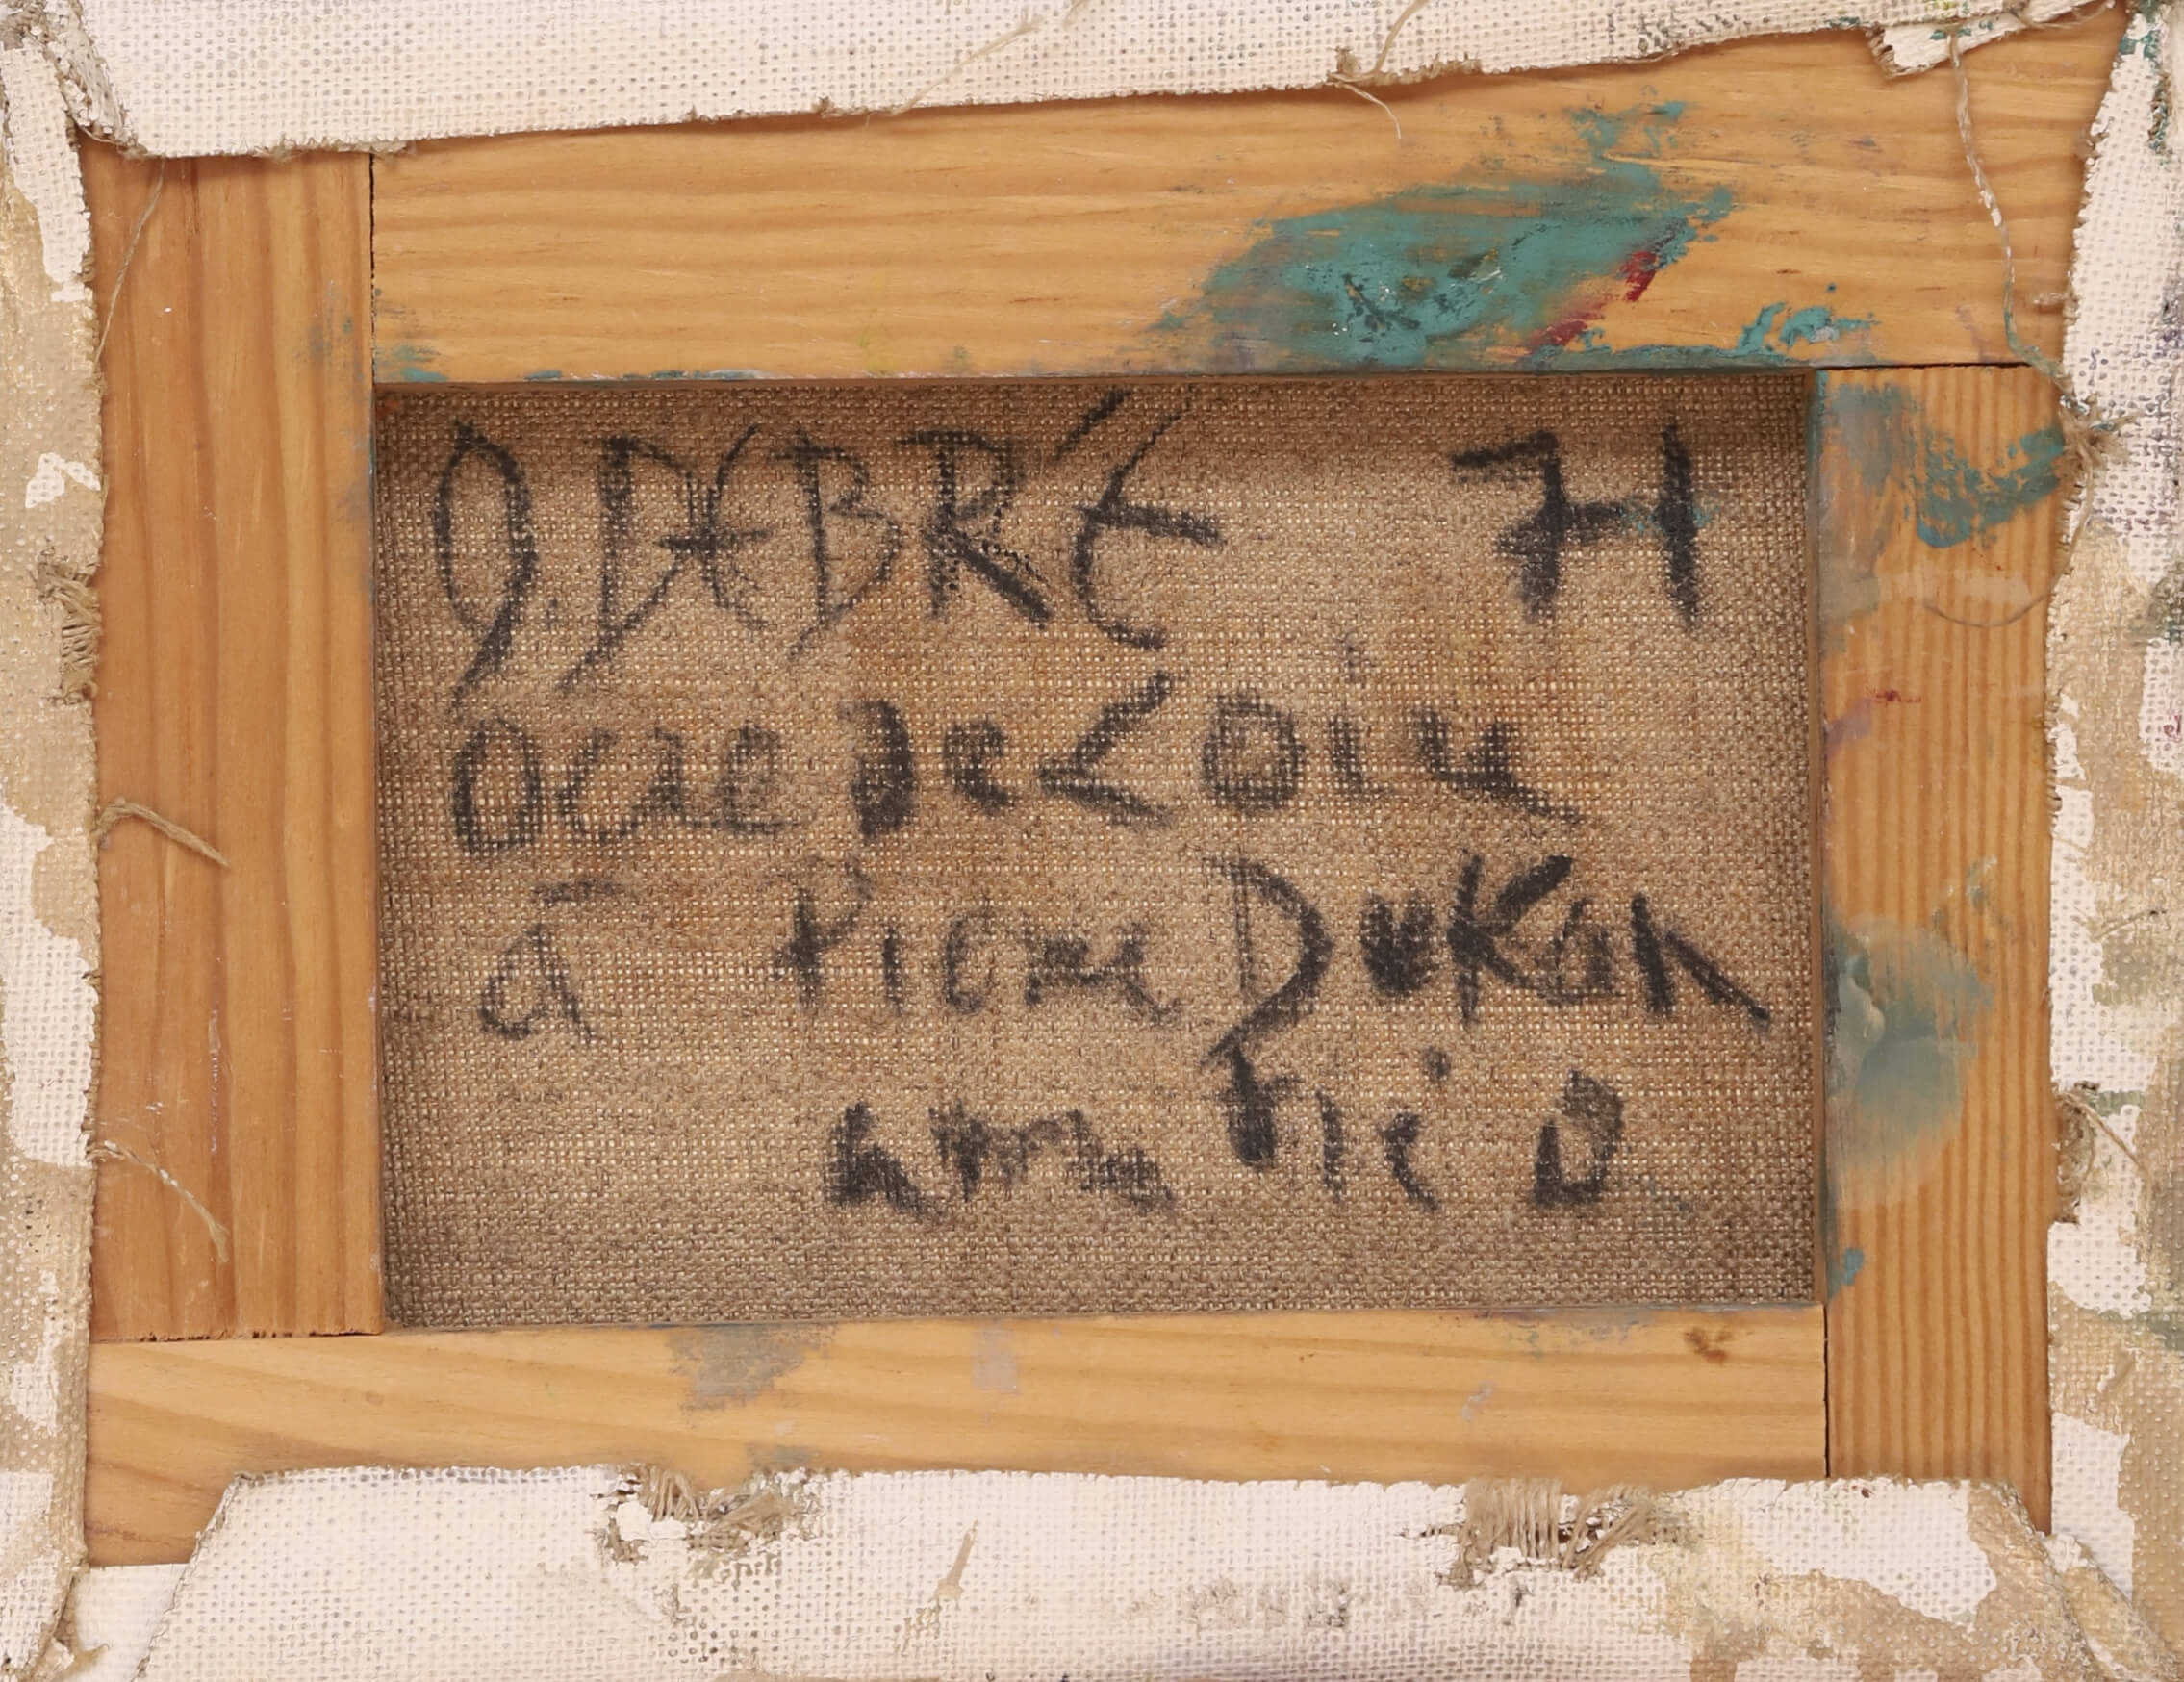 O. DEBRÉ 71
Ocre de Loire
à Pierre Dukan